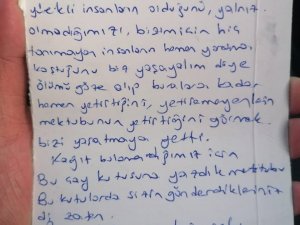 yürekli insanların olduğunu, yalnız
olmadığımızı, bizim için hiç
tanımayan insanların hemen yardıma
koştuğunu biz yaşayalım diye
ölümü göze alıp buralara kadar
hemen yetiştiğini, yetişemeyenlerin
mektubunun yetiştiğini görmek
bizi yaşatmaya yetti.
Kağıt bulamadığımız için
Bu çay kutusuna yazdık mektubu
Bu kutularda sizin gönderdikleriniz
di zaten.